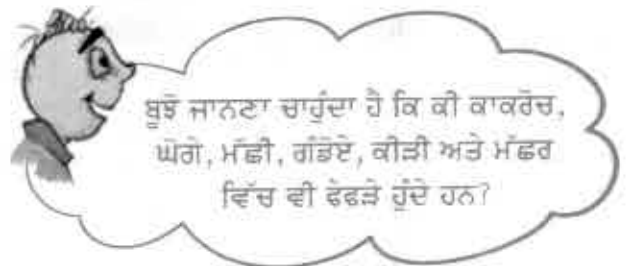 ਬੂਝੋ ਜਾਨਣਾ ਚਾਹੁੰਦਾ ਹੈ ਕਿ ਕੀ ਕਾਕਰੋਚ,
ਘੋਗੇ, ਮੱਛੀ, ਗੰਡੋਏ, ਕੀੜੀ ਅਤੇ ਮੱਛਰ
ਵਿੱਚ ਵੀ ਫੇਫੜੇ ਹੁੰਦੇ ਹਨ?